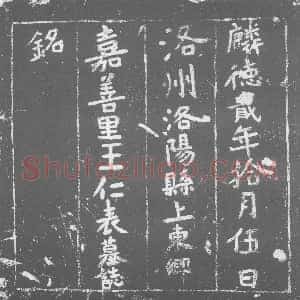 麟德貳年拾月伍日
洛州洛陽縣上東鄉
嘉善里王仁表墓誌
銘